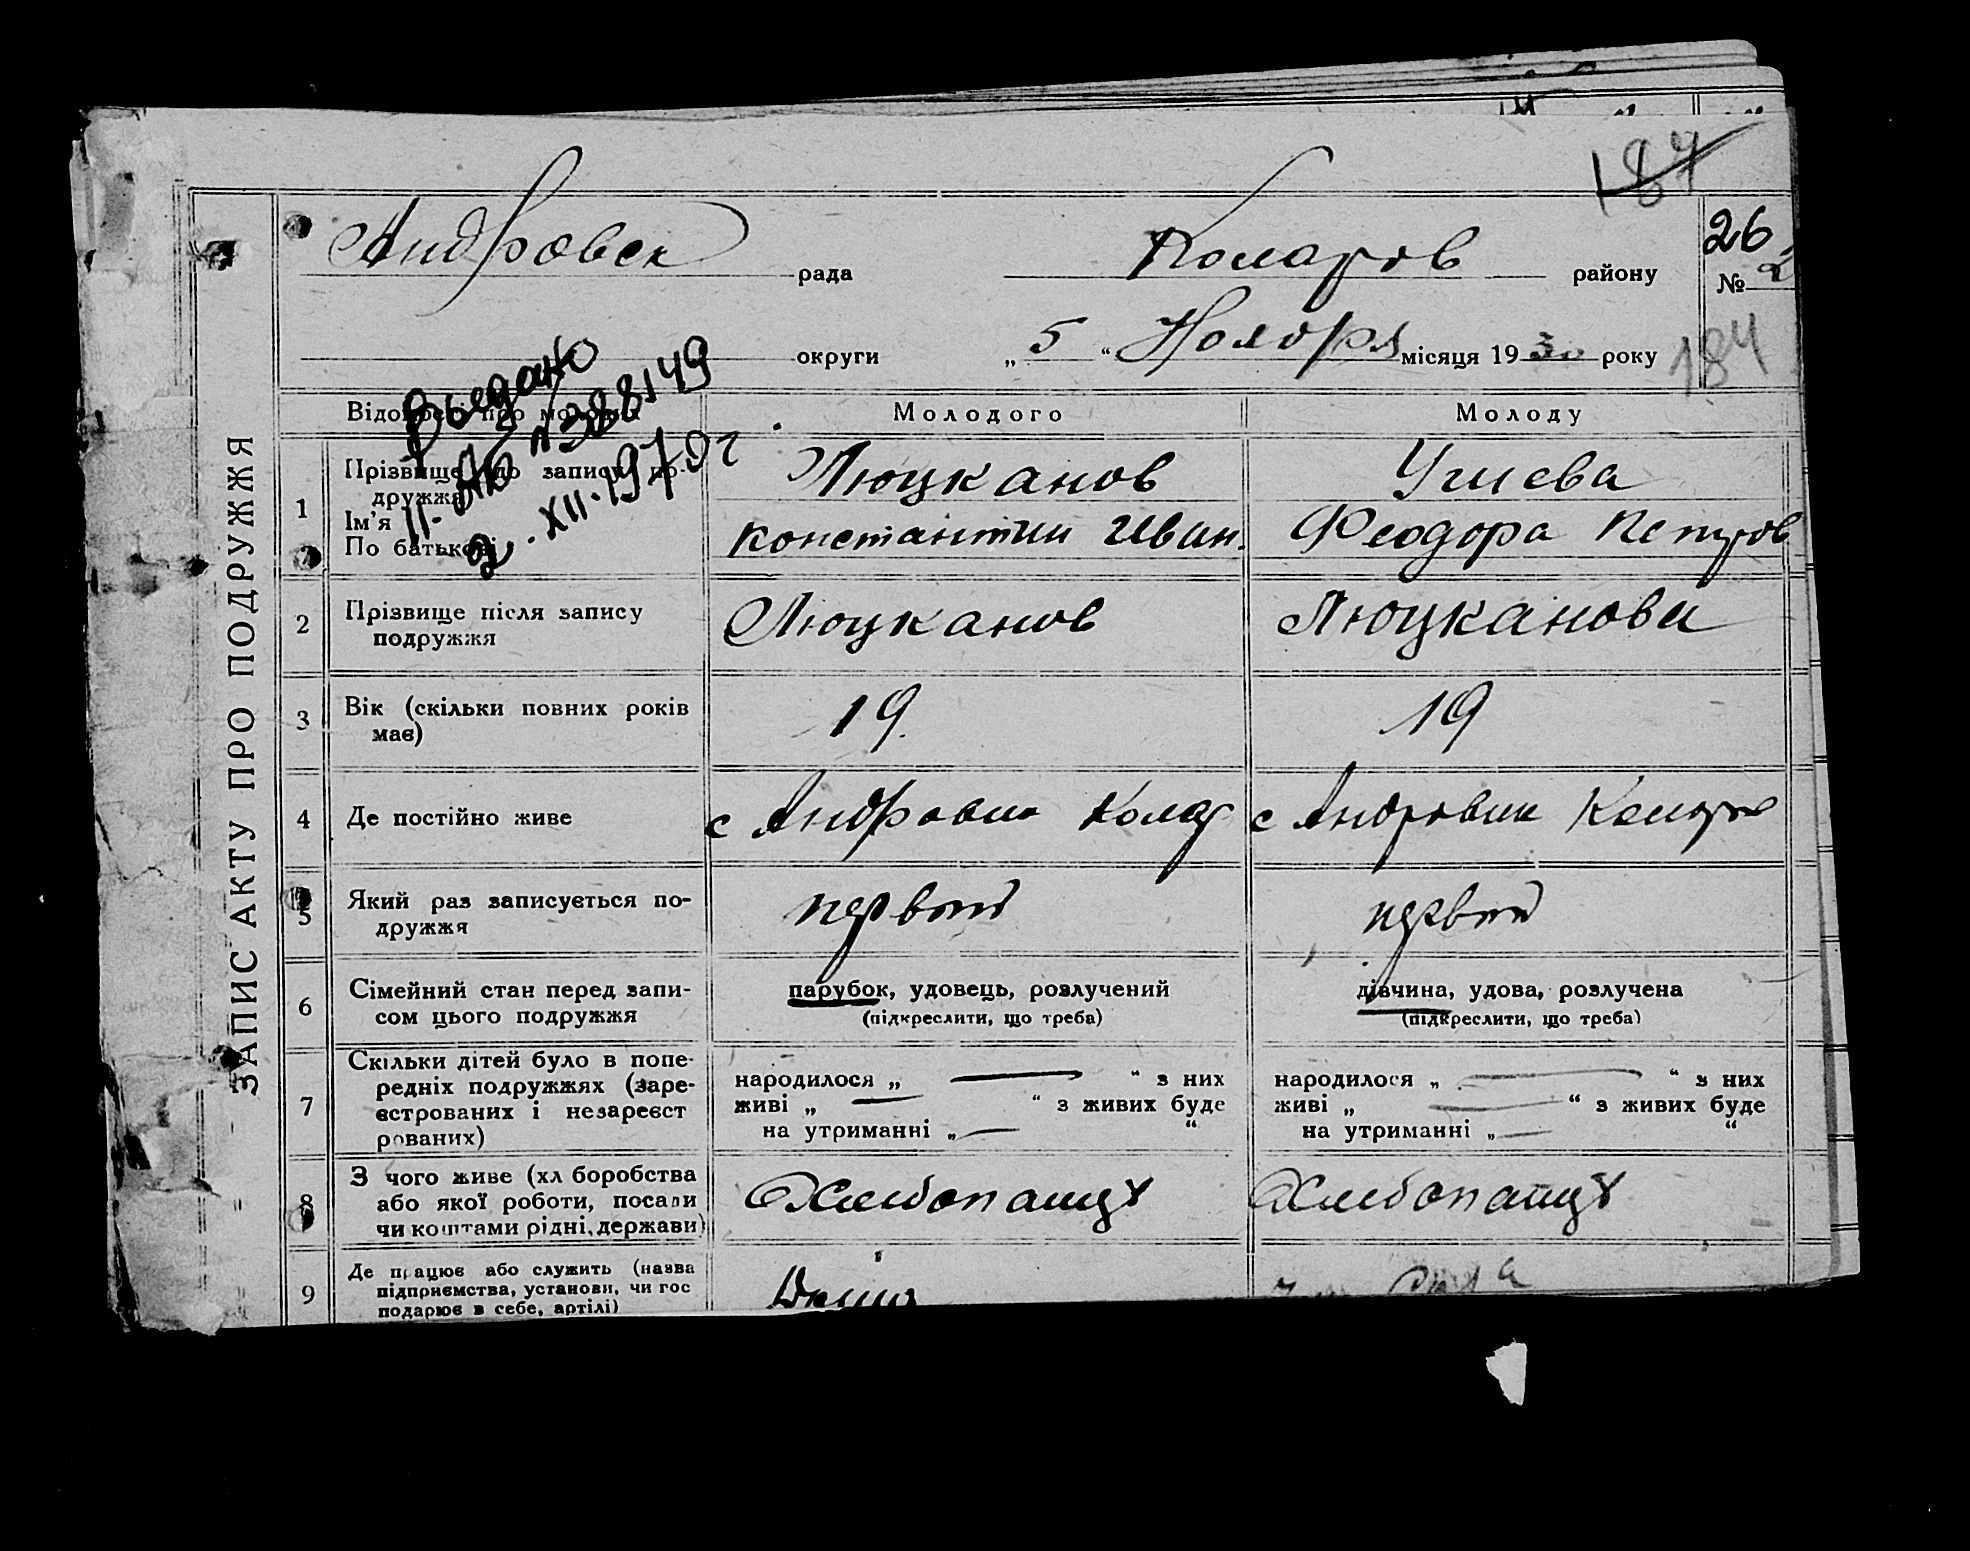 187
Андровск рада Коларов району
26
№ 2
округи „ 5 “ Ноября місяця 1930 року
184
Выедано
II-АБ №388149
2.XII.1970г
ЗАПИС АКТУ ПРО ПОДРУЖЖЯ
Відомості про молодих Молодого Молоду
1 Прізвище до запису по- Люцканов Учиева
дружжя
Ім’я Константин Иван. Феодора Петров
По батькові
2 Прізвище після запису Люцканов Люцканова
подружжя
3 Вік (скільки повних років 19. 19
має)
4 Де постійно живе с Андровка Колар с Андровка Коларов
5 Який раз записується по- первый первый
дружжя
6 Сімейний стан перед запи- парубок, удовець, розлучений дівчина, удова, розлучена
сом цього подружжя (підкреслити, що треба) (підкреслити, що треба)
7 Скільки дітей було в попе-
редніх подружжях (заре- народилося „ — “ з них народилося „ — “ з них
єстрованих і незареєст живі „ — “ з живих буде живі „ — “ з живих буде
рованих) на утриманні „ — “ на утриманні „ — “
8 З чого живе (хл боробства
або якої роботи, посади Хлебопащ Хлебопащ
чи коштами рідні, держави)
9 Де працює або служить (назва
підприємства, установи, чи гос
подарює в себе, артілі)